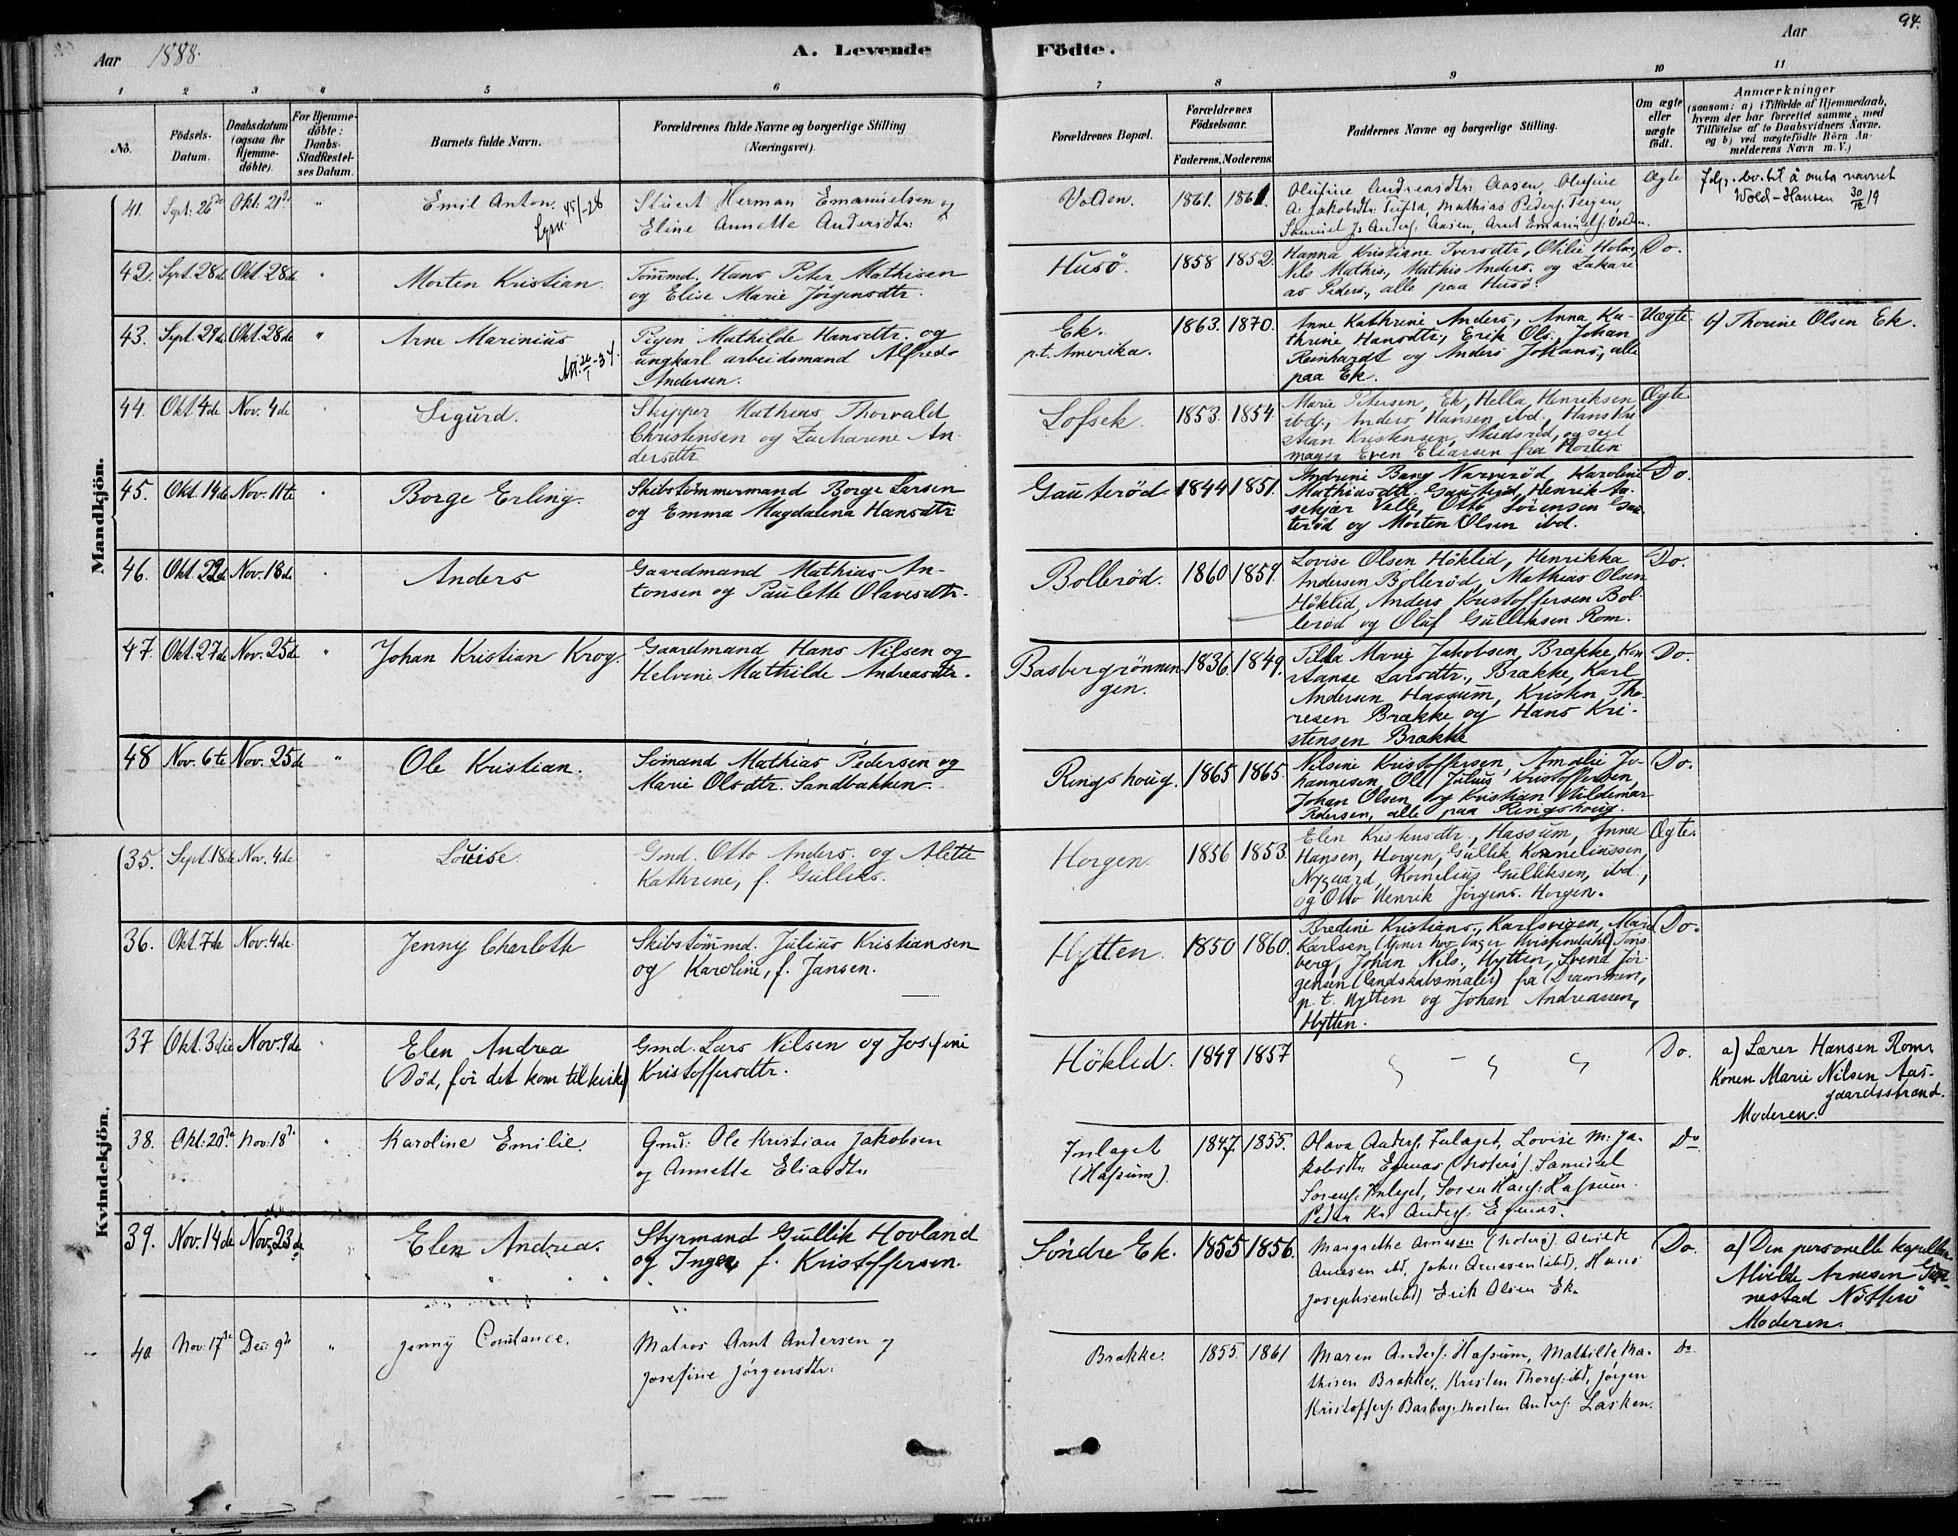 Aar 1888.
A. Levende Födte.
Aar
94.
1 2 3 4 5 6 7 8 9 10 11
No.
Födsels-Datum.
Daabsdatum (ogsaa for Hjemme-döbte).
For Hjemme-döbte: Daabs-Stadfæstel-ses Datum.
Barnets fulde Navn.
Forældrenes fulde Navne og borgerlige Stilling (Næringsvei).
Forældrenes Bopæl.
Forældrenes Födselsaar.
Faderens. Moderens.
Faddernes Navne og borgerlige Stilling.
Om ægte eller uægte födt.
Anmærkninger
(saasom: a) i Tilfælde af Hjemmedaab,
hvem der har forrettet samme, med
Tilföielse af to Daabsvidners Navne,
og b) ved uægtefödte Börn An-
melderens Navn m. V.)
Mandkjön.
41. Sept: 26de Okt: 21de " Emil Anton.
45/-28
Herman Emanuelsen og
Eline Annette Andersdtr:
Volden. 1861. 1861.
Olufine Andreasdtr: Aasen, Olufine
A: Jakobsdtr: Tufta, Mathias Peders: Teigen,
Samuel J: Anders: Aasen, Arnt Emanuels: Volden.
Ægte
Følg. bev. til å anta navnet
Wold-Hansen 30/12 19
42. Sept. 28de Okt. 28de " Morten Kristian.
Tömmd. Hans Peter Mathisen
og Elise Marie Jörgensdtr.
Husö. 1858 1852.
Hanna Kristiane Iversdtr, Otilie Holm,
Nils Mathis., Mathis Anders. og Zakari-
as Peders., alle paa Husö.
Do.
43. Sept. 29de Okt. 28de " Arne Marinius
Pigen Mathilde Hansdtr. og
ungkarl arbeidsmand Alfred
Andersen.
Ek.
p.t. Amerika.
1863. 1870.
Anne Kathrine Anders., Anna Ka-
thrine Hansdtr., Erik Ols., Johan
Reinhardt og Anders Johans., alle
paa Ek.
Uægte.
b) Thorine Olsen Ek.
44. Okt 4de Nov. 4de Sigurd.
Skipper Mathias Thorvald
Christensen og Zacharine An-
dersdtr
Lofsek. 1853. 1854
Marie Petersen, Ek, Hella Henriksen
ibd., Anders Hansen, ibd., Hans Kri-
stian Kristensen, og seil
mager Even Eliassen fra Horten
Ægte
45. Okt. 14de Nov. 11te " Borge Erling.
Skibstömmermand Borge Larsen
og Emma Magdalena Hansdtr
Gauteröd 1844 1851.
Andrine Bang Narveröd, Karoline
Mathiasdtr. Gauteröd, Henrik Aa-
sekjær Velle, Otto Sörensen Gau-
teröd og Morten Olsen ibd.
Do.
46. Okt. 22de Nov. 18de Anders
Gaardmand Mathias An-
tonsen og Paulette Olavesdtr.
Bolleröd. 1860 1859.
Lovise Olsen Höklid, Henrikka
Andersen Bolleröd, Mathias Olsen
Höklid, Anders Kristoffersen Bol-
leröd og Oluf Gulliksen Rom.
Do.
47. Okt. 27de Nov. 25de " Johan Kristian Krog.
Gaardmand Hans Nilsen og
Helvine Mathilde Andreasdtr.
Basbergrönnin-
gen.
1836. 1849.
Tilda Marie Jakobsen, Brække, Kon-
stanse Larsdtr., Brække, Karl
Andersen Hassum, Kristen Tho-
resen Brække og Hans Kri-
stensen Brække
Do.
48 Nov. 6te Nov. 25de " Ole Kristian.
Sömand Mathias Pedersen og
Marie Olsdtr. Sandbakken.
Ringshoug. 1865 1865.
Nilsine Kristoffersen, Amalie Jo-
hannesen, Ole Julius Kristoffersen,
Johan Olsen og Kristian Vildemar
Pedersen, alle paa Ringshoug.
Do.
Kvindekjön.
35. Sept. 18de Nov. 4de Louise.
Gmd. Otto Anders. og Alette
Kathrine, f. Gulliks.
Horgen. 1856 1853.
Elen Kristensdtr., Hassum, Anne
Hansen, Horgen, Gullik Korneliussen,
Nygaard, Kornelius Gulliksen, ibd.,
og Otto Henrik Jörgens. Horgen.
Ægte.
36. Okt. 7de Nov. 4de. Jenny Charlotte
Skibstömmd. Julius Kristiansen
og Karoline, f. Jansen.
Hytten. 1850 1860.
Bredine Kristians., Karlsvigen, Marie
Karlsen (tjener hos Bager ), Töns-
berg, Johan Nils., Hytten, Svend Jör-
gensen (landskabsmaler) fra Drammen,
p.t. Hytten og Johan Andreassen,
Hytten.
Do.
37 Okt. 3die Nov. 9de Elen Andrea
(Död, før det kom til kirke)
Gmd. Lars Nilsen og Josefine
Kristoffersdtr.
Höklid. 1849 1857
Do.
a) Lærer Hansen Rom.
Konen Marie Nilsen Aas-
gaardsstrand.
Moderen.
38. Okt: 20de Nov: 18de " Karoline Emilie.
Gmd: Ole Kristian Jakobsen
og Annette Eliasdtr.
Inlaget
(Hassum).
1847. 1855.
Olava Anders: Inlaget, Lovise M: Ja-
kobsdtr. Egenæs (Nøterø). Samuel
Sørens: Inlaget, Søren Hans: Hassum.
Peder Kr. Anders: Egenæs.
Do
39. Nov. 14de Nov. 23de " Elen Andrea.
Styrmand Gullik Hovland
og Inger, f. Kristoffersen.
Söndre Ek. 1855 1856.
Margrethe Arnesen (Nøterø). 
Arnesen ibd, John Arnesen (ibd), Hans
Josephsen (ibd) Erik Olsen Ek.
Do.
a) Den personelle kapellan
Arnesen
nestad Nötterö
Moderen.
40 Nov: 17de Dec: 9de " Jenny Constance.
Matros Arnt Andersen og
Josefine Jørgensdtr:
Brække. 1855. 1861
Maren Anders: Hassum, Mathilde Ma-
thisen Brække, Kristen Thores: ibd, Jørgen
Kristoffers: Basberg. Morten Anders: Løsken.
Do.